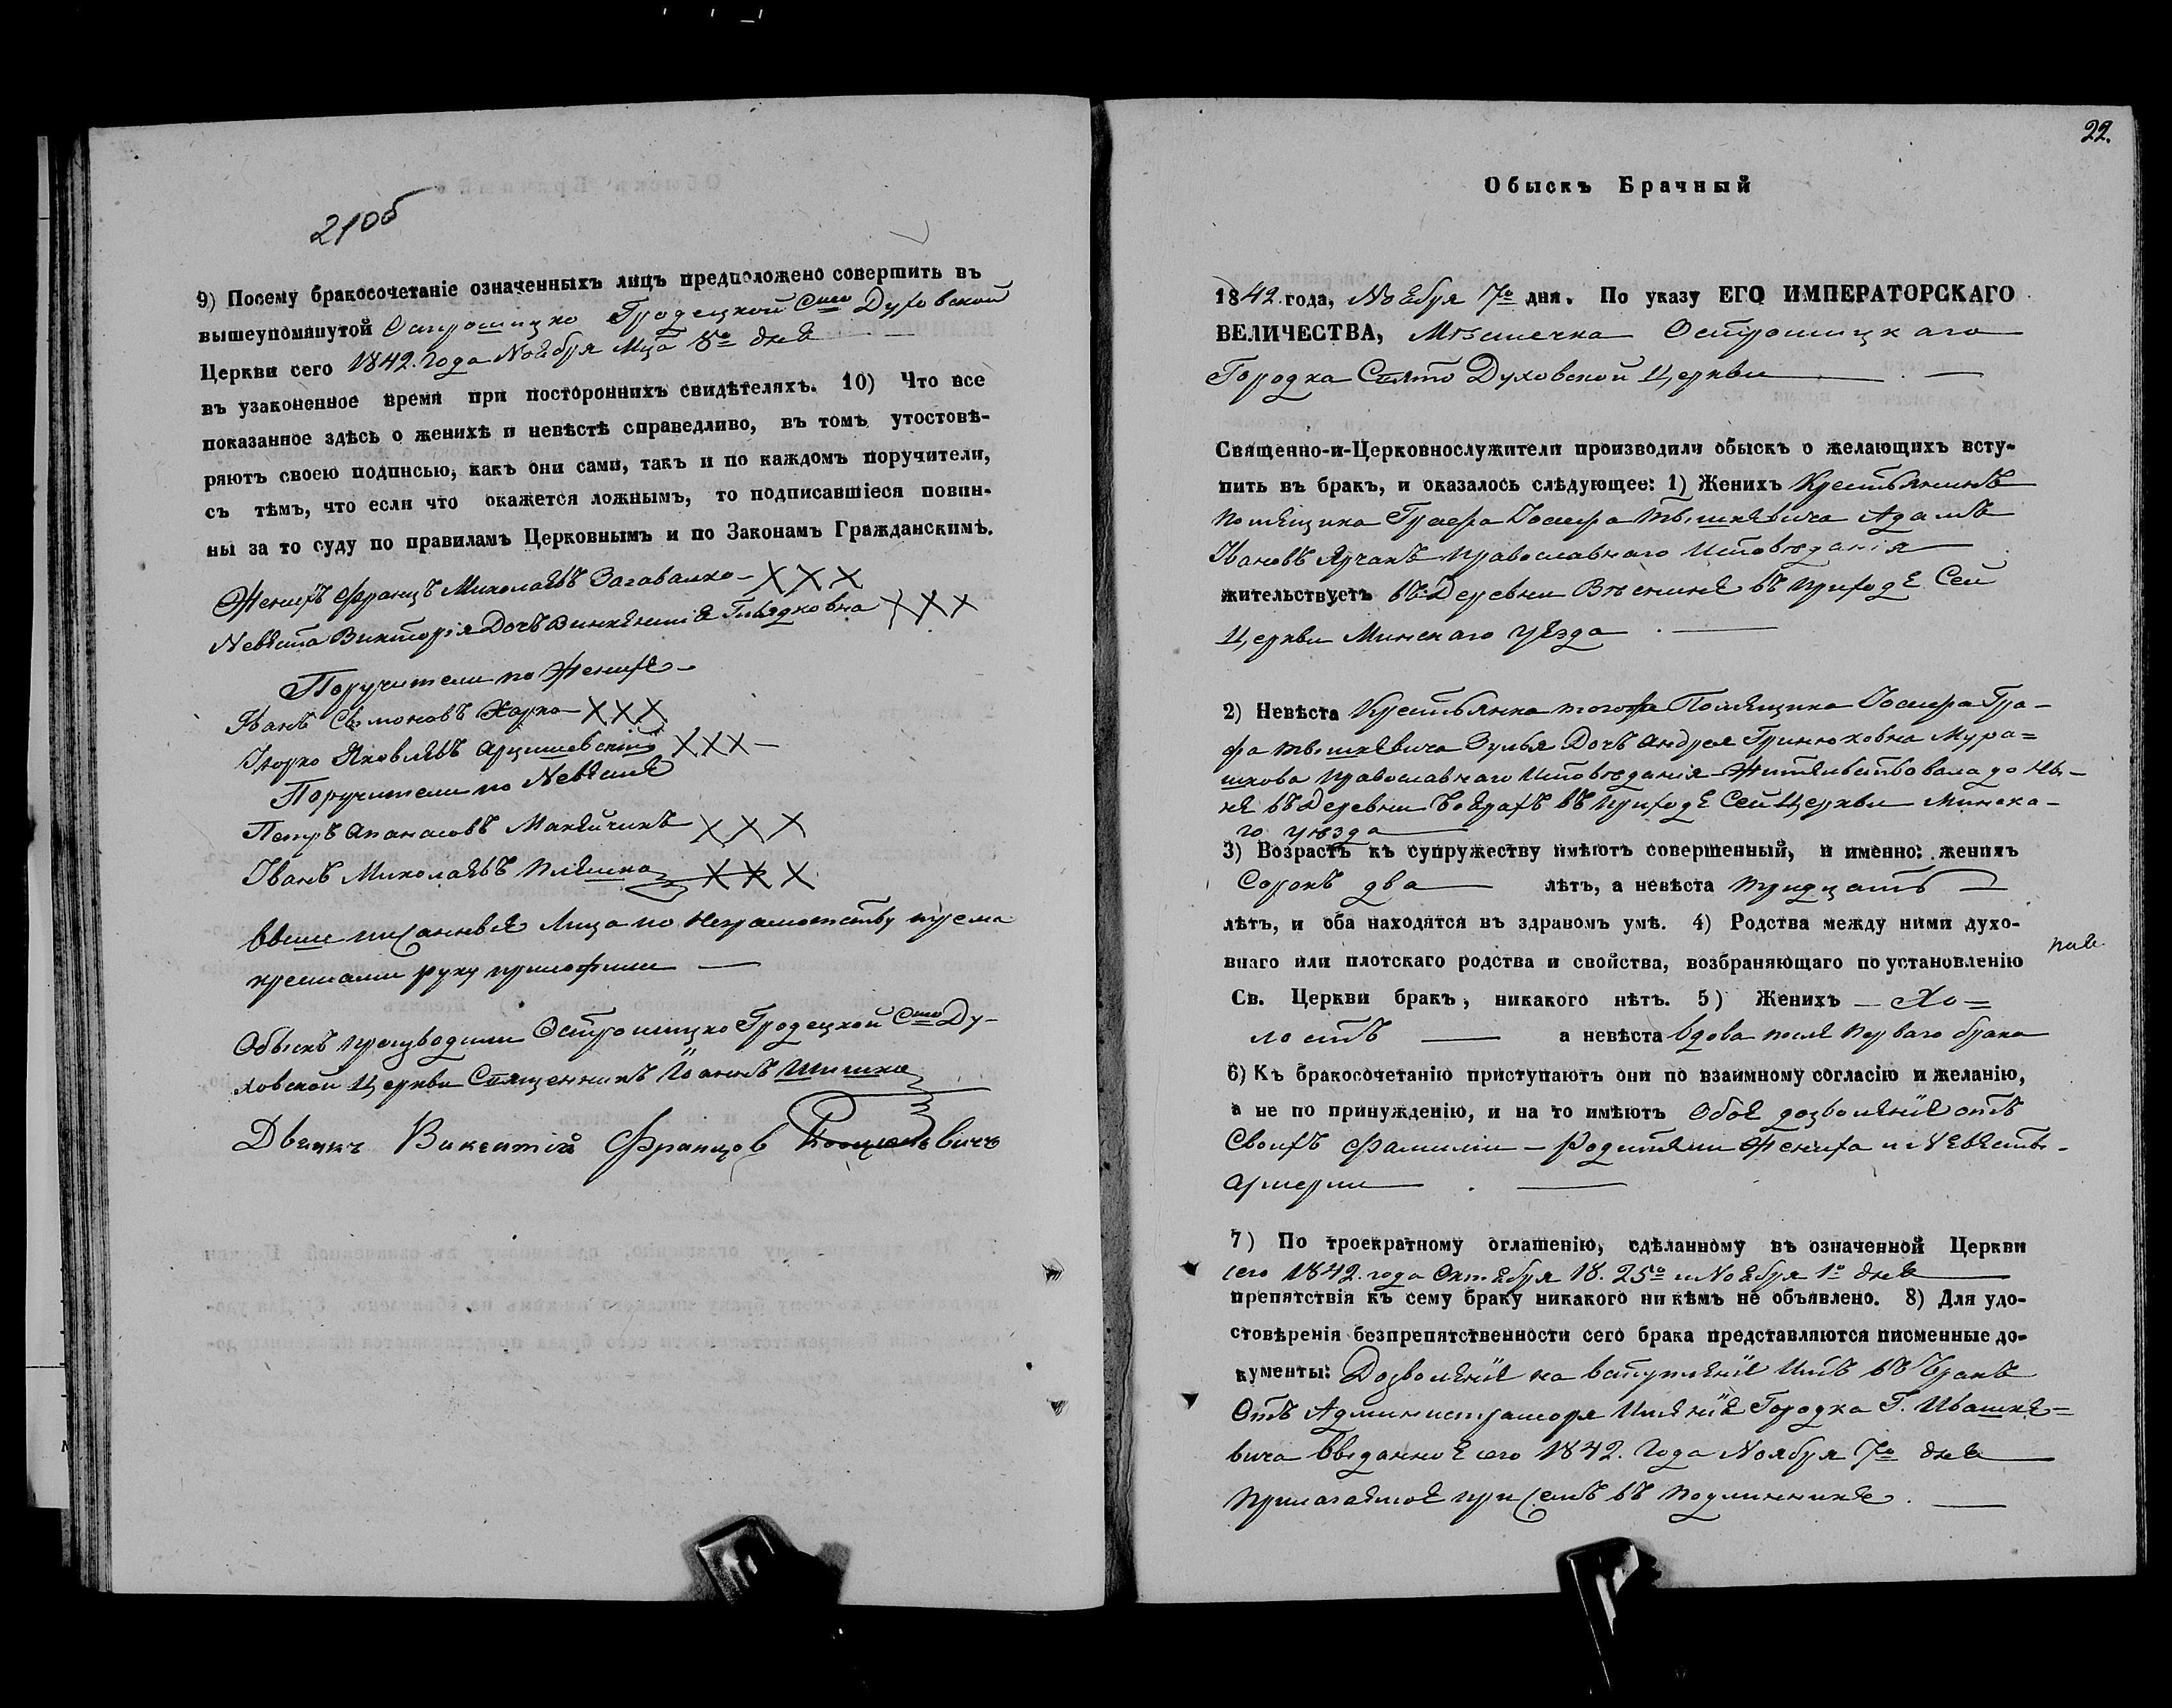 21об
9) Посему бракосочетаніе означенныхъ лицъ предположено совершить въ
вышеупомянутой Острошицко Гродецкой Свято Духовской
Церкви сего 1842. года Ноября Мца 8го дня
въ узаконенное время при постороннихъ свидѣтеляхъ. 10) Что все
показанное здѣсь о женихѣ и невѣстѣ справедливо, въ томъ утостовѣ-
ряютъ своею подписью, какъ они сами, такъ и по каждомъ поручители,
съ тѣмъ, что если что окажется ложнымъ, то подписавшіеся повин-
ны за то суду по правиламъ Церковнымъ и по Законамъ Гражданскимъ.
Женихъ Францъ Миколаевъ ХХХ
Невѣста Викторія Дочь Викентія ХХХ
Поручители по Женихе
Иванъ Харко ХХХ
Юрко Яковлевъ Арцишевскій ХХХ
Поручители по Невѣсте
Петръ Апанасовъ ХХХ
Иванъ Миколаевъ ХХХ
выше писанные Лица по Неграмотству трема
крестами руку приложили
Обыскъ производили Острошицко Гродецкой Свято Ду-
ховской Церкви Священникъ Іоаннъ Шишка
Дьячкъ Викентій Францов
22.
Обыскъ Брачный
1842 года, Ноября 7го дня. По указу ЕГО ИМПЕРАТОРСКАГО
ВЕЛИЧЕСТВА, Мѣстечка Острошицкаго
Городка Свято Духовской Церкви
Священно-и-Церковнослужители производили обыскъ о желающихъ всту-
пить въ бракъ, и оказалось слѣдующее: 1) Женихъ Крестьянинъ
помещика Графа Іосифа Тышкевича Адамъ
Ивановъ Ярчакъ Православнаго Исповѣданія
жительствуетъ въ Деревни въ приходе Сей
Церкви Минскаго уезда
2) Невѣста Крестьянка Помещика Іосифа Гра-
фа Тышкевича Зулья Дочь Андрея Гринюковна Мура-
шкова Православнаго Исповѣданія Жительствовала до ны-
не въ Деревни въ приходе Сей Церкви Минска-
го уезда
3) Возрастъ къ супружеству имѣютъ совершенный, и именно: женихъ
Сорокъ два лѣтъ, а невѣста тридцать
лѣтъ, и оба находятся въ здравомъ умѣ. 4) Родства между ними духо-
внаго или плотскаго родства и свойства, возбраняющаго по установленію
Св. Церкви бракъ, никакого нѣтъ. 5) Женихъ Хо=
лостъ а невѣста вдова после перваго брака
6) Къ бракосочетанію приступаютъ они по взаимному согласію и желанію,
а не по принужденію, и на то имѣютъ Обое дозволеніе отъ
Своихъ Фамиліи - Родители Жениха и Невесты
7) По троекратному оглашенію, сдѣланному въ означенной Церкви
сего 1842. года Октября 18. 25го и Ноября 1го дня
препятствія къ сему браку никакого ни кѣмъ не объявлено. 8) Для удо-
стовѣренія безпрепятственности сего брака представляются писменные до-
кументы: Дозволеніе на вступленіе Имъ въ бракъ
Отъ Администратора Именія Городка Г. Ивашке=
вича выданное сего 1842. Года Ноября 7го дня
прилагаемое при семъ въ подлиннике.